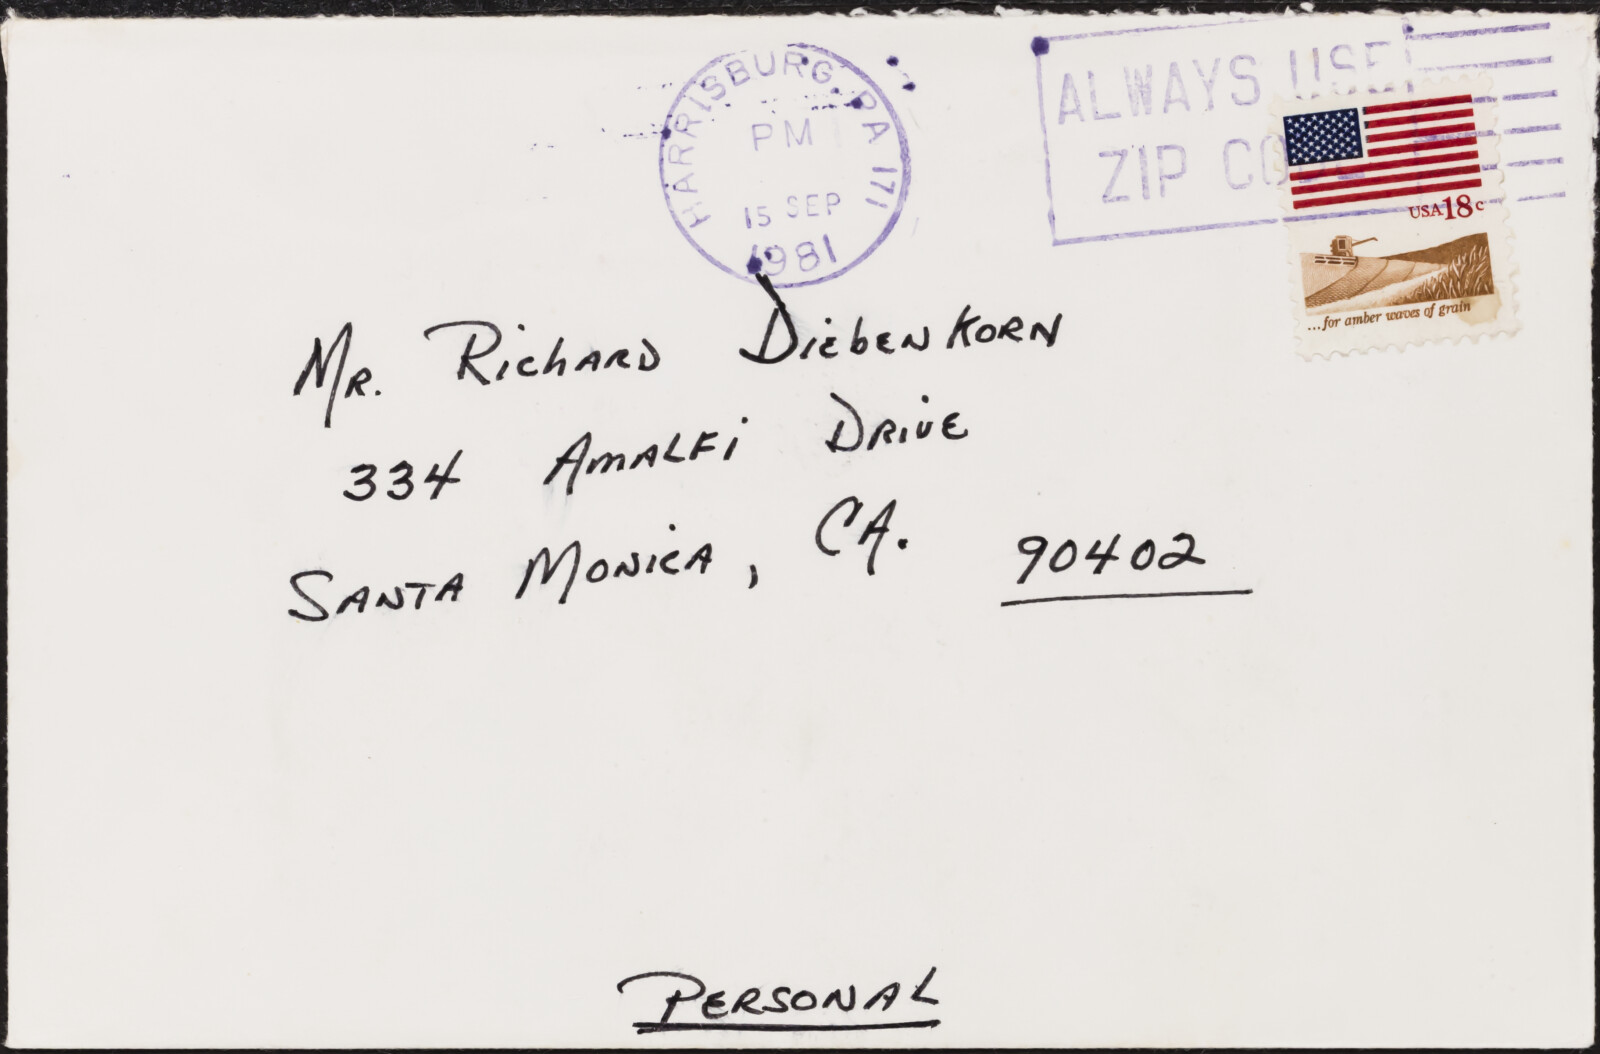 HARRISBURG, PA 171
PM
15 SEP
1981
ALWAYS USE
ZIP CODE
USA 18c
...for amber waves of grain
Mr. Richard Diebenkorn
334 Amalfi Drive
Santa Monica, CA. 90402
Personal